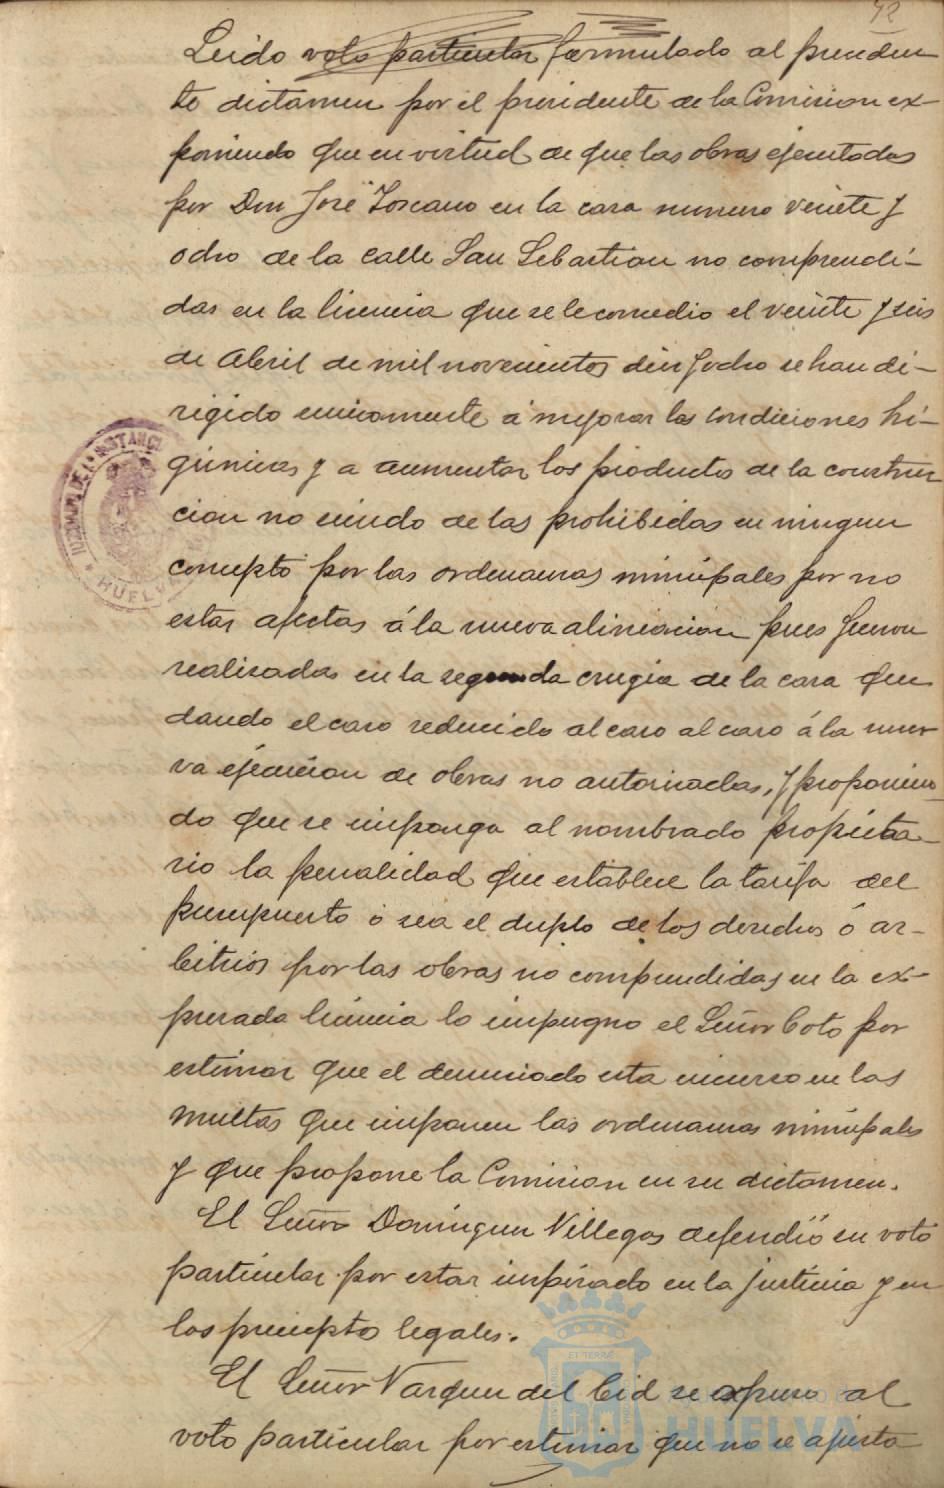 42
Leido voto particular formulado al preceden
te dictamen por el presidente de la Comision ex-
poniendo que en virtud de que las obras ejecutadas
por Don José Toscano en la casa numero veinte y
ocho de la calle San Sebastian no comprendi-
das en la licencia que se le concedio el veinte y seis
de Abril de mil novecientos diez y ocho se han di-
rigido unicamente á mejorar las condiciones hi-
gienicas y a aumentar los productos de la construc
cion no siendo de las prohibidas en ningun
concepto por las ordenanzas municipales por no
estar afectas á la nueva alineacion pues fueron
realizadas en la segunda crugia de la casa que
dando el caso reducido al caso al caso á la nue
va ejecucion de obras no autorizadas, y proponien-
do que se imponga al nombrado propieta-
rio la penalidad que establece la tarifa del
presupuesto ó sea el duplo de los derechos ó ar-
bitrios por las obras no comprendidas en la ex-
presada licencia lo impugno el Señor Coto por
estimar que el denunciado esta incurso en las
multas que imponen las ordenanzas municipales
y que propone la Comision en su dictamen.
El Señor Dominguez Villegas defendió su voto
particular por estar inspirado en la justicia y en
los preceptos legales.
El Señor Vazquez del Cid se opuso al
voto particular por estimar que no se ajusta
JUZGADO DE 1ª INSTANCIA
HUELVA
ET TERRÆ
HUELVA